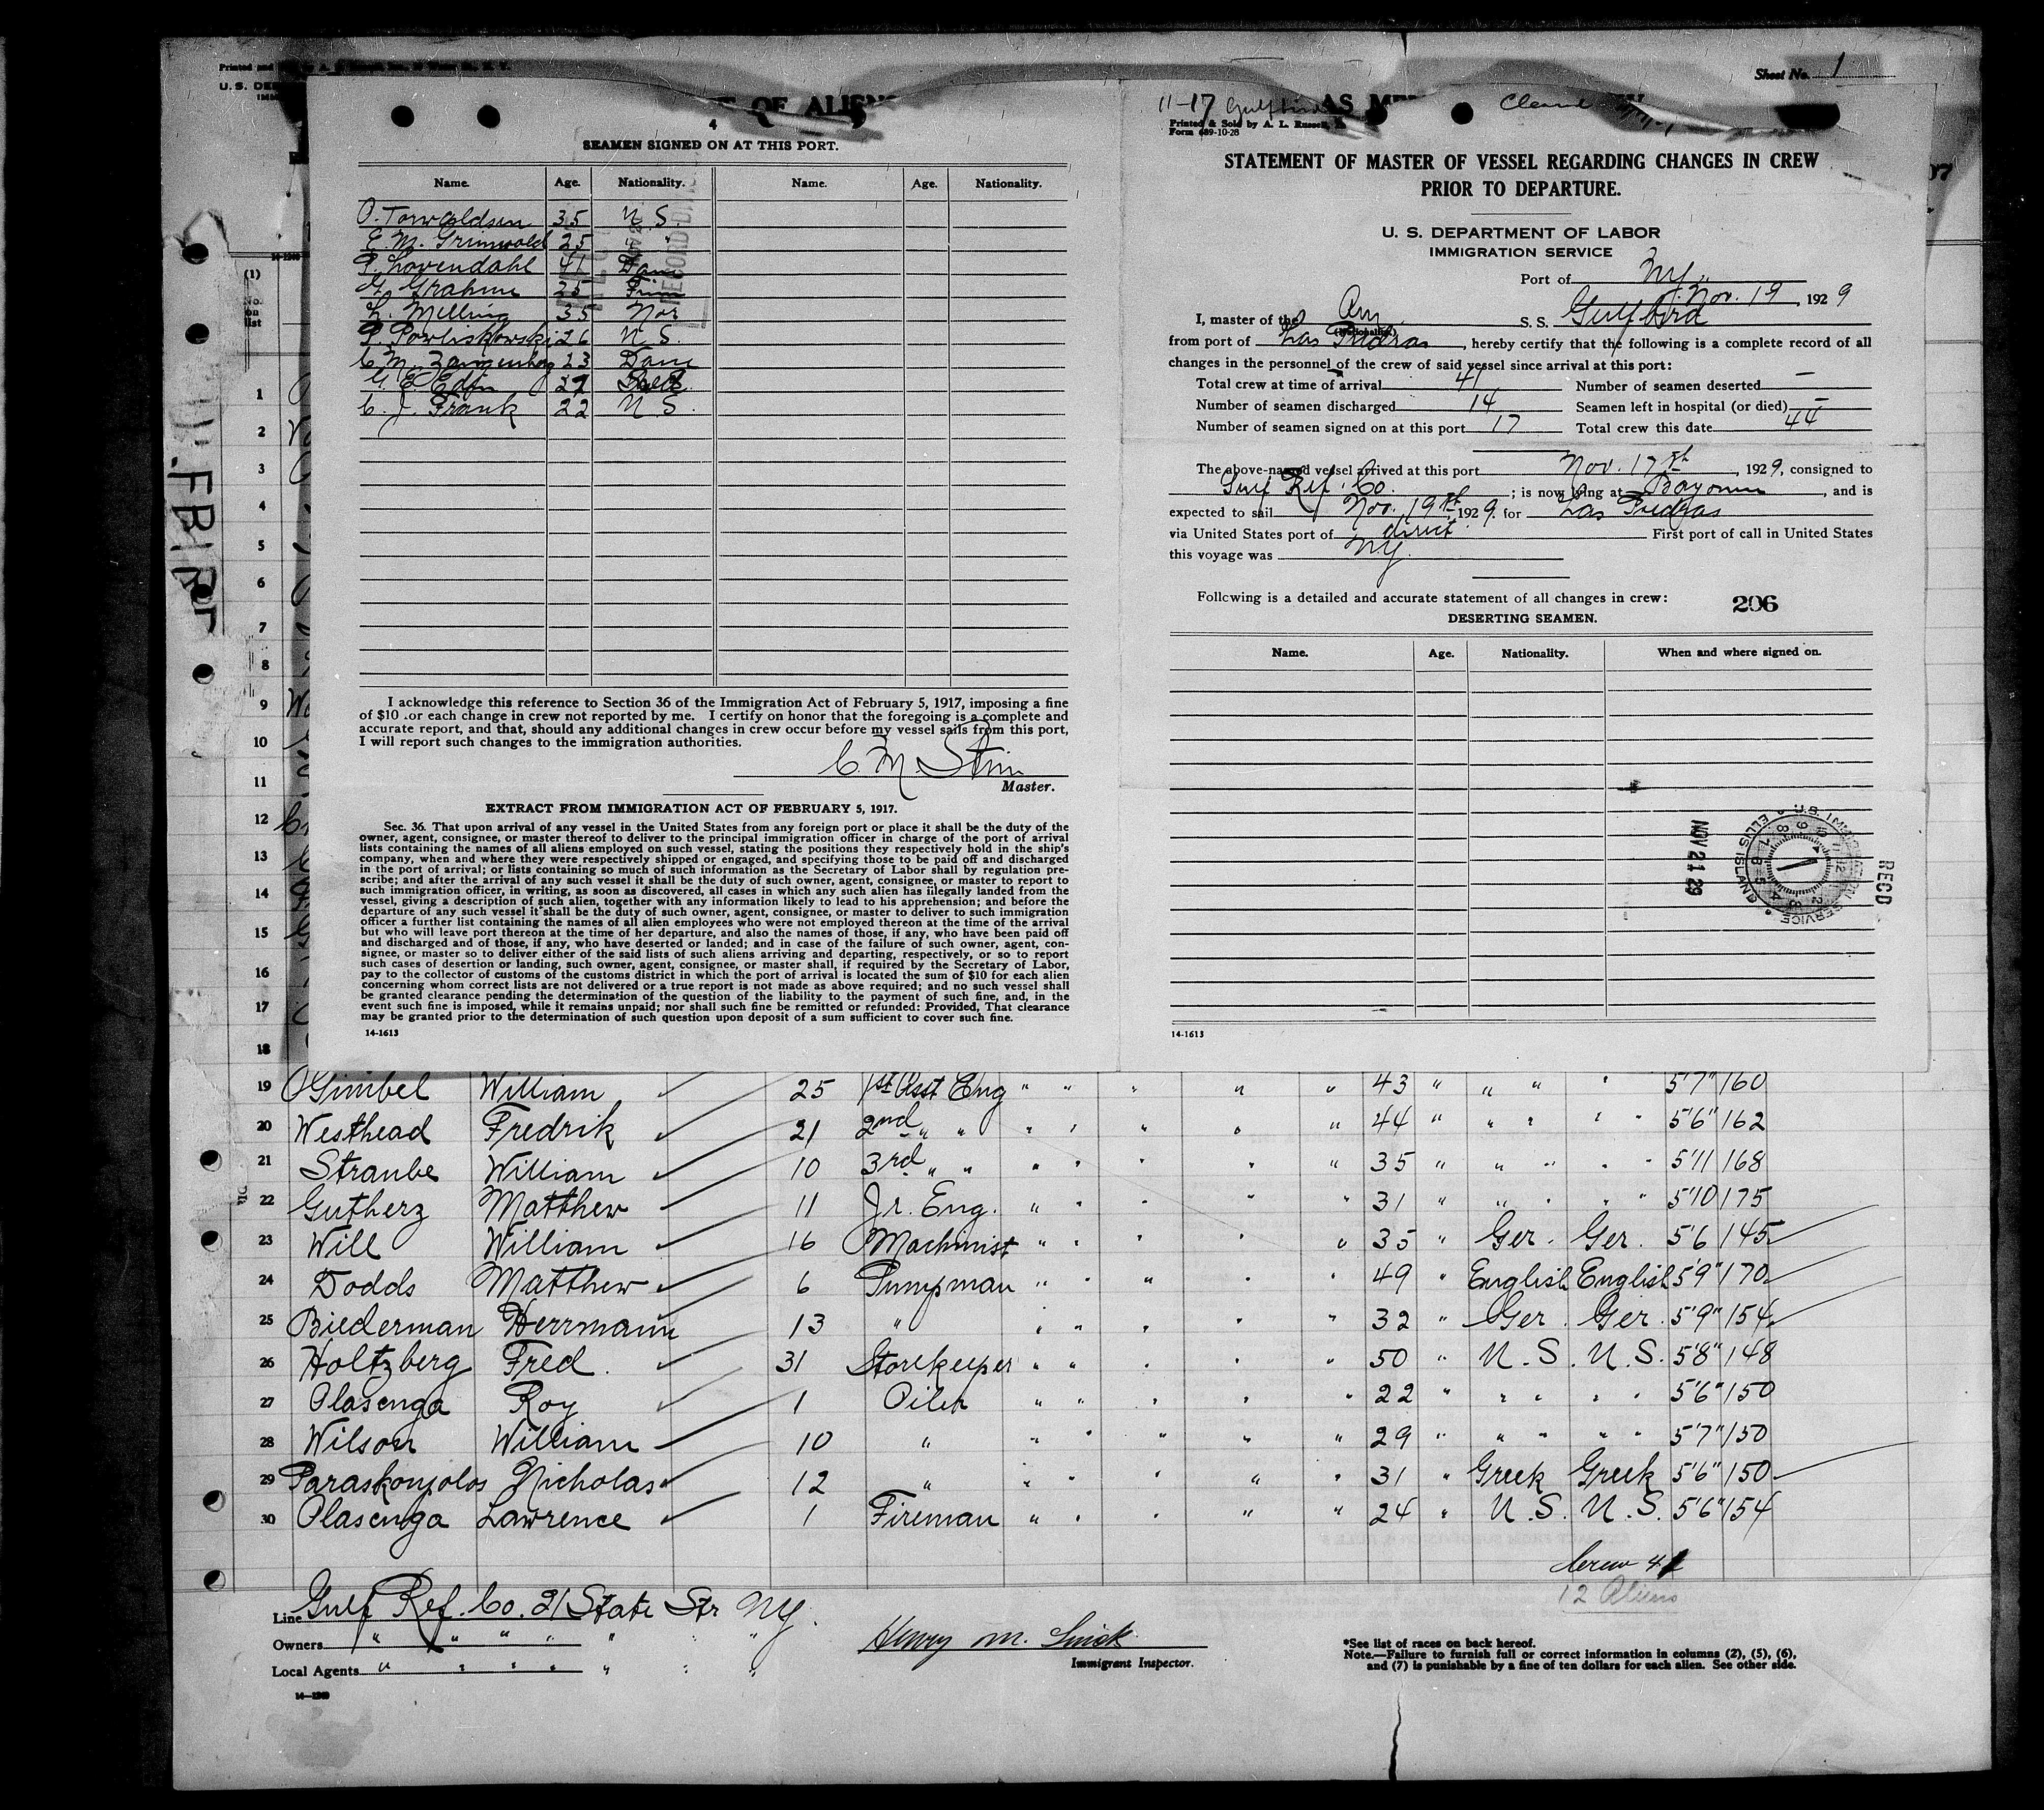 Sheet No. 1
4
SEAMEN SIGNED ON AT THIS PORT.
Name. Age. Nationality. Name. Age. Nationality.
O. Torwaldsen 35 U.S.
E. M. Grunwold 25 "
P. Lovendahl 41 Dane
G. Grahme 25 Finn
L. Melling 35 Nor
P. Powliskowski 26 U.S.
C. M. Zangenberg 23 Dane
G. E. Edin
C. J. Frank 22 U.S.
I acknowledge this reference to Section 36 of the Immigration Act of February 5, 1917, imposing a fine
of $10 for each change in crew not reported by me. I certify on honor that the foregoing is a complete and
accurate report, and that, should any additional changes in crew occur before my vessel sails from this port,
I will report such changes to the immigration authorities.
C. M.
Master.
EXTRACT FROM IMMIGRATION ACT OF FEBRUARY 5, 1917.
Sec. 36. That upon arrival of any vessel in the United States from any foreign port or place it shall be the duty of the
owner, agent, consignee, or master thereof to deliver to the principal immigration officer in charge of the port of arrival
lists containing the names of all aliens employed on such vessel, stating the positions they respectively hold in the ship's
company, when and where they were respectively shipped or engaged, and specifying those to be paid off and discharged
in the port of arrival; or lists containing so much of such information as the Secretary of Labor shall by regulation pre-
scribe; and after the arrival of any such vessel it shall be the duty of such owner, agent, consignee, or master to report to
such immigration officer, in writing, as soon as discovered, all cases in which any such alien has illegally landed from the
vessel, giving a description of such alien, together with any information likely to lead to his apprehension; and before the
departure of any such vessel it shall be the duty of such owner, agent, consignee, or master to deliver to such immigration
officer a further list containing the names of all alien employees who were not employed thereon at the time of the arrival
but who will leave port thereon at the time of her departure, and also the names of those, if any, who have been paid off
and discharged and of those, if any, who have deserted or landed; and in case of the failure of such owner, agent, con-
signee, or master so to deliver either of the said lists of such aliens arriving and departing, respectively, or so to report
such cases of desertion or landing, such owner, agent, consignee, or master shall, if required by the Secretary of Labor,
pay to the collector of customs of the customs district in which the port of arrival is located the sum of $10 for each alien
concerning whom correct lists are not delivered or a true report is not made as above required; and no such vessel shall
be granted clearance pending the determination of the question of the liability to the payment of such fine, and, in the
event such fine is imposed, while it remains unpaid; nor shall such fine be remitted or refunded: Provided, That clearance
may be granted prior to the determination of such question upon deposit of a sum sufficient to cover such fine.
14-1613
11-17 Gulfbird
Printed & Sold by A. L. Russell,
Form 689-10-28
STATEMENT OF MASTER OF VESSEL REGARDING CHANGES IN CREW
PRIOR TO DEPARTURE.
U. S. DEPARTMENT OF LABOR
IMMIGRATION SERVICE
Port of NY.
Nov. 19, 1929
I, master of the Am S. S. Gulfbird
(Nationality.)
from port of Las Piedras, hereby certify that the following is a complete record of all
changes in the personnel of the crew of said vessel since arrival at this port:
Total crew at time of arrival 41 Number of seamen deserted —
Number of seamen discharged 14 Seamen left in hospital (or died) —
Number of seamen signed on at this port 17 Total crew this date 44
The above-named vessel arrived at this port Nov. 17th, 1929, consigned to
Gulf Ref. Co. ; is now lying at Bayonne, and is
expected to sail Nov. 19th, 1929. for Las Piedras
via United States port of direct First port of call in United States
this voyage was NY.
Following is a detailed and accurate statement of all changes in crew: 206
DESERTING SEAMEN.
Name. Age. Nationality. When and where signed on.
U.S. IMMIGRATION SERVICE ELLIS ISLAND
NOV 21 29
RECD
14-1613
(1)
No. on list
1
2
3
4
5
6
7
8
9
10
11
12
13
14
15
16
17
18
19 Gimbel William 25 1st Asst Eng " " " " " 43 " " " " 5'7" 160
20 Westhead Fredrik 21 2nd " " " " " " " 44 " " " " " 5'6" 162
21 Straube William 10 3rd " " " " " " " 35 " " " " " 5'11 168
22 Gutherz Matthew 11 Jr. Eng. " " " " " 31 " " " " " 5'10 175
23 Will William 16 Machinist " " " " " 35 " Ger. Ger. 5'6 145
24 Dodds Matthew 6 Pumpman " " " " " 49 " English English 5'9" 170
25 Biederman Herrmann 13 " " " " " " 32 " Ger. Ger. 5'9" 154
26 Holtzberg Fred. 31 Storekeeper " " " " " 50 " U.S. U.S. 5'8" 148
27 Olasenga Roy 1 Oiler " " " " " 22 " " " " " 5'6" 150
28 Wilson William 10 " " " " " " 29 " " " " " 5'7" 150
29 Paraskovpolos Nicholas 12 " " " " " " 31 " Greek Greek 5'6" 150
30 Olasenga Lawrence 1 Fireman " " " " " 24 " U.S. U.S. 5'6" 154
Crew 41
12 Aliens
Line Gulf Ref. Co. 21 State Str NY.
Owners " " " " " " "
Local Agents " " " " " " "
Henry M.
Immigrant Inspector.
*See list of races on back hereof.
Note.—Failure to furnish full or correct information in columns (2), (5), (6),
and (7) is punishable by a fine of ten dollars for each alien. See other side.